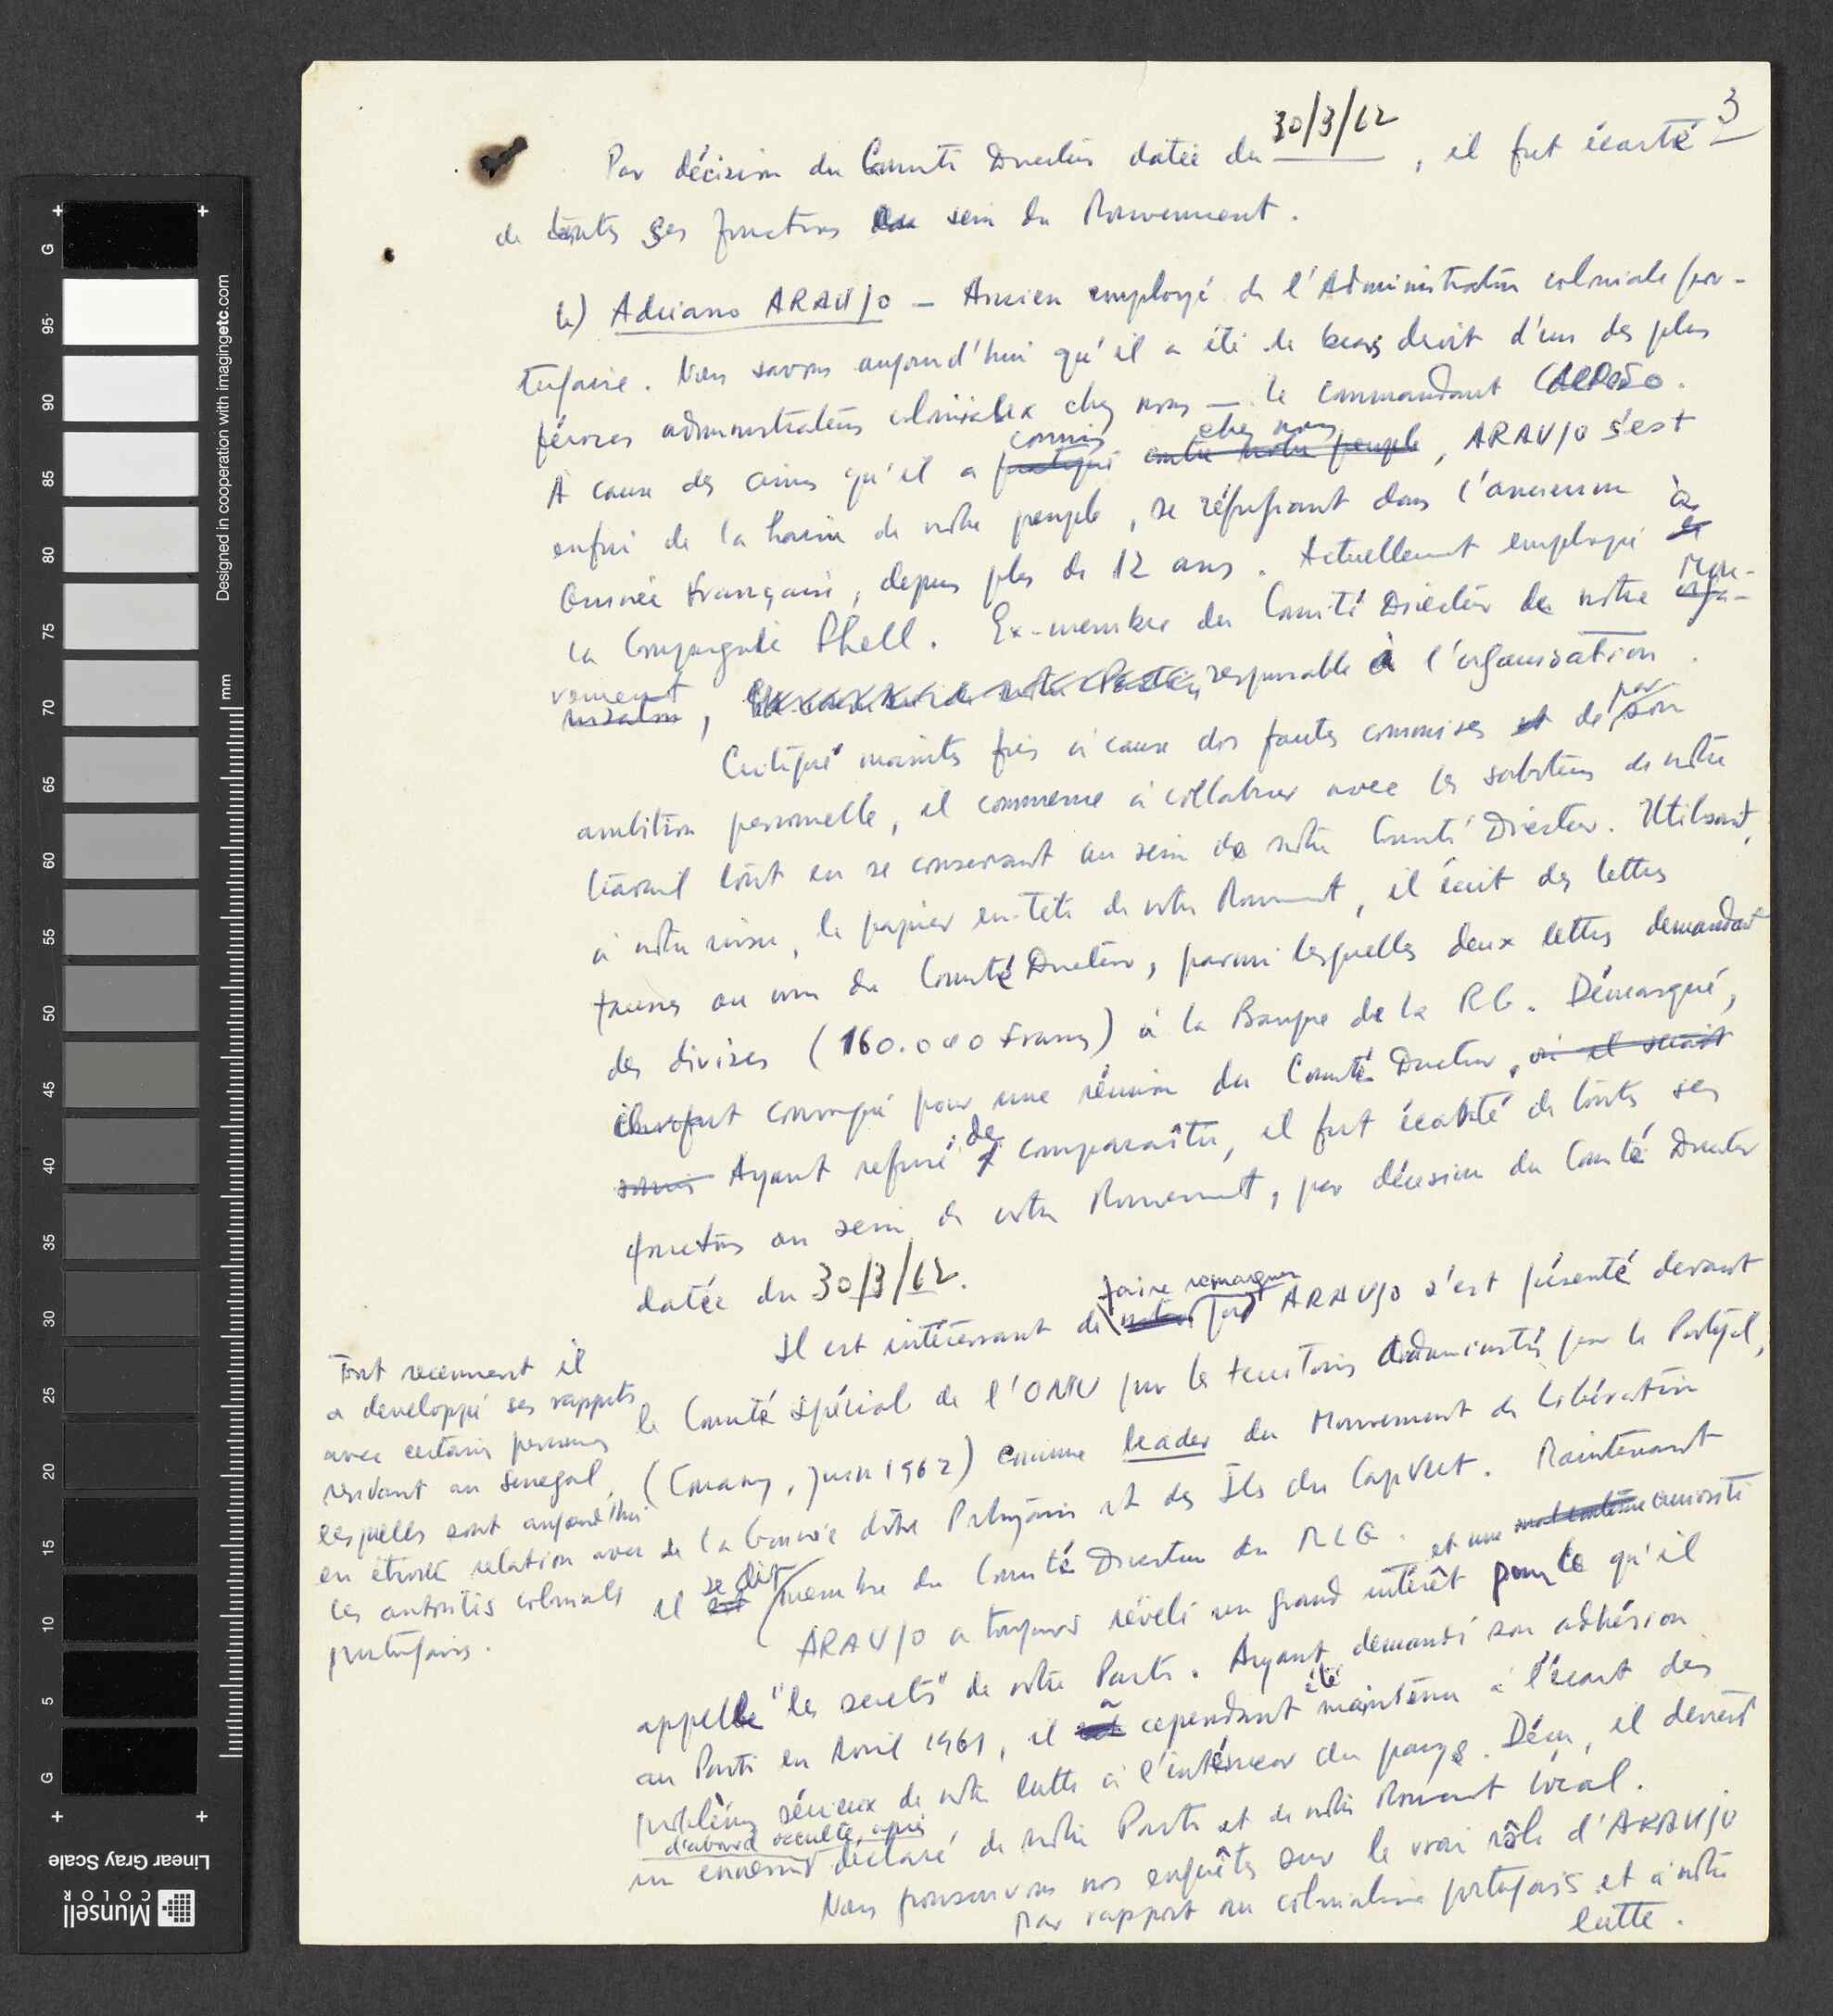 3
Par décision du Comité Directeur datée du 30/3/62, il fut écarté
de toutes ses fonctions au sein du Mouvement.
b) Adriano ARAUJO – Ancien employé de l'Administration coloniale por-
tugaise. Nous savons aujourd'hui qu'il a été le bras droit d'un des plus
féroces administrateurs coloniaux chez nous – le commandant
À cause des crimes qu'il a pratiqué commis contre notre peuple chez nous, ARAUJO s'est
enfui de la haine de notre peuple, se réfugiant dans l'ancienne
Guinée française, depuis plus de 12 ans. Actuellement employé à
la Compagnie Shell. Ex-membre du Comité Directeur de notre orga- Mou-
nisation vement, responsable à l'organisation.
Critiqué maintes fois à cause des fautes commises et de par son
ambition personnelle, il commence à collaborer avec les saboteurs de notre
travail tout en se conservant au sein de notre Comité Directeur. Utilisant,
à notre insu, le papier en-tête de notre Mouvement, il écrit des lettres
fausses au nom du Comité Directeur, parmi lesquelles deux lettres demandant
des divises (160.000 francs) à la Banque de la R.G. Démasqué,
il fut convoqué pour une réunion du Comité Directeur, où il serait
soumis Ayant refusé de comparaître, il fut écarté de toutes ses
fonctions au sein de notre Mouvement, par décision du Comité Directeur
datée du 30/3/62.
Il est intéressant de noter faire remarquer que ARAUJO s'est présenté devant
le Comité spécial de l'ONU pour les territoires administrés par le Portugal,
(Conakry, juin 1962) comme leader du Mouvement de Libération
de la Guinée dite Portugaise et des Iles du Cap Vert. Maintenant
il est se dit membre du Comité Directeur du MLG.
Tout recemment il
a developpé ses rapports
avec certaines personnes
residant au Senegal,
lesquelles sont aujourd'hui
en étroite relation avec
les autorités coloniales
portugaises.
ARAUJO a toujours révélé un grand intérêt et une curiosité pour ce qu'il
appelle "les secrets" de notre Parti. Ayant demandé son adhésion
au Parti en Avril 1961, il a cependant été maintenu à l'écart des
problèmes sérieux de notre lutte à l'intérieur du pays. Déçu, il devient
d'abord occulte, après
un ennemi déclaré de notre Parti et de notre Mouvement local.
Nous poursuivons nos enquêtes sur le vrai rôle d'ARAUJO
par rapport au colonialisme portugais et à notre
lutte.
G
95
90
85
80
75
70
65
60
55
50
45
40
35
30
25
20
15
10
5
G
mm
Designed in cooperation with imagingetc.com
Linear Gray Scale
Munsell
COLOR